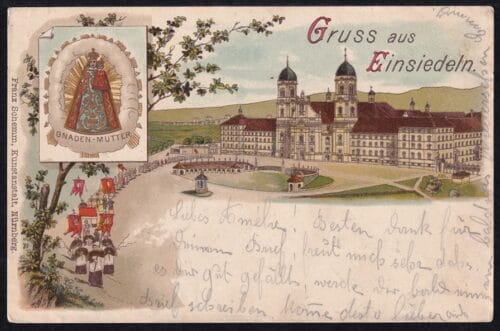 Gruss aus
Einsiedeln.
GNADEN-MUTTER
Franz Schemm, Kunstanstalt, Nürnberg.
Liebes Amélie! Besten Dank für
Deinen Brief, freut mich sehr dass
es Dir gut gefällt, werde Dir bald einen
Brief schreiben. Komme desto lieber